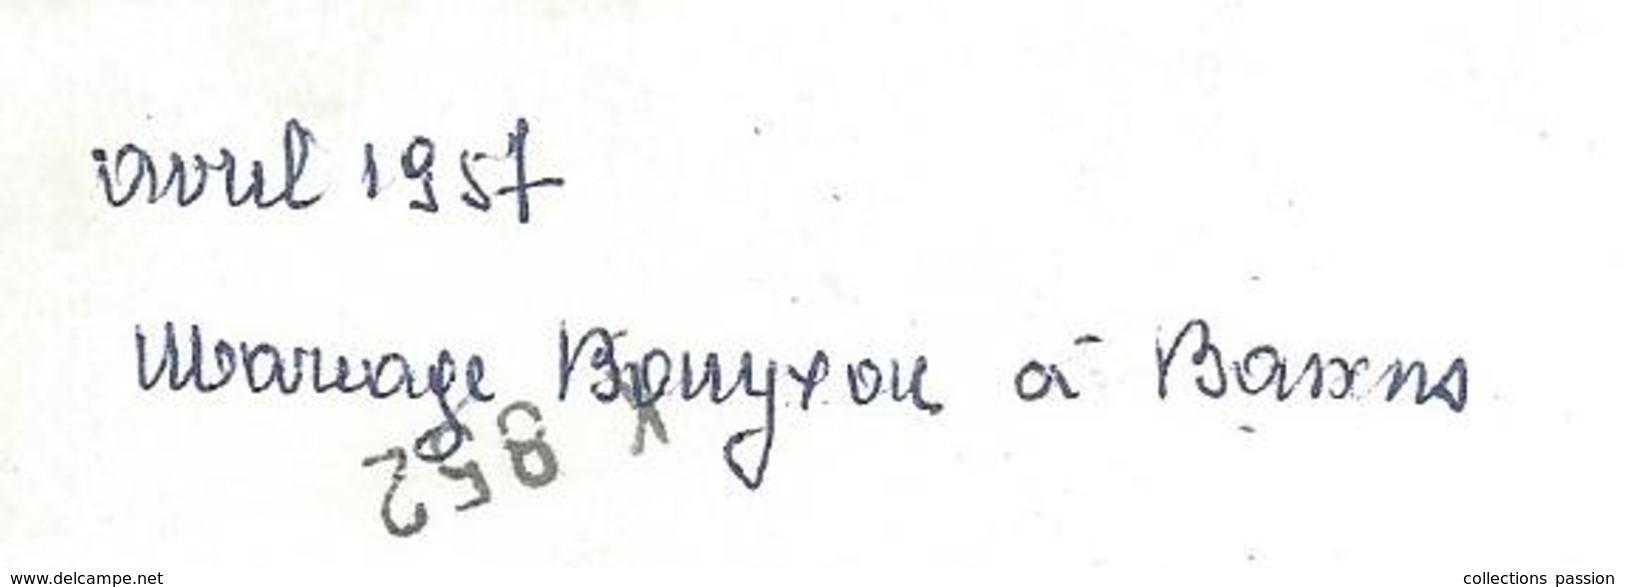 avril 1957
Mariage Bouyxou à Barxns
852
www.delcampe.net
collections passion